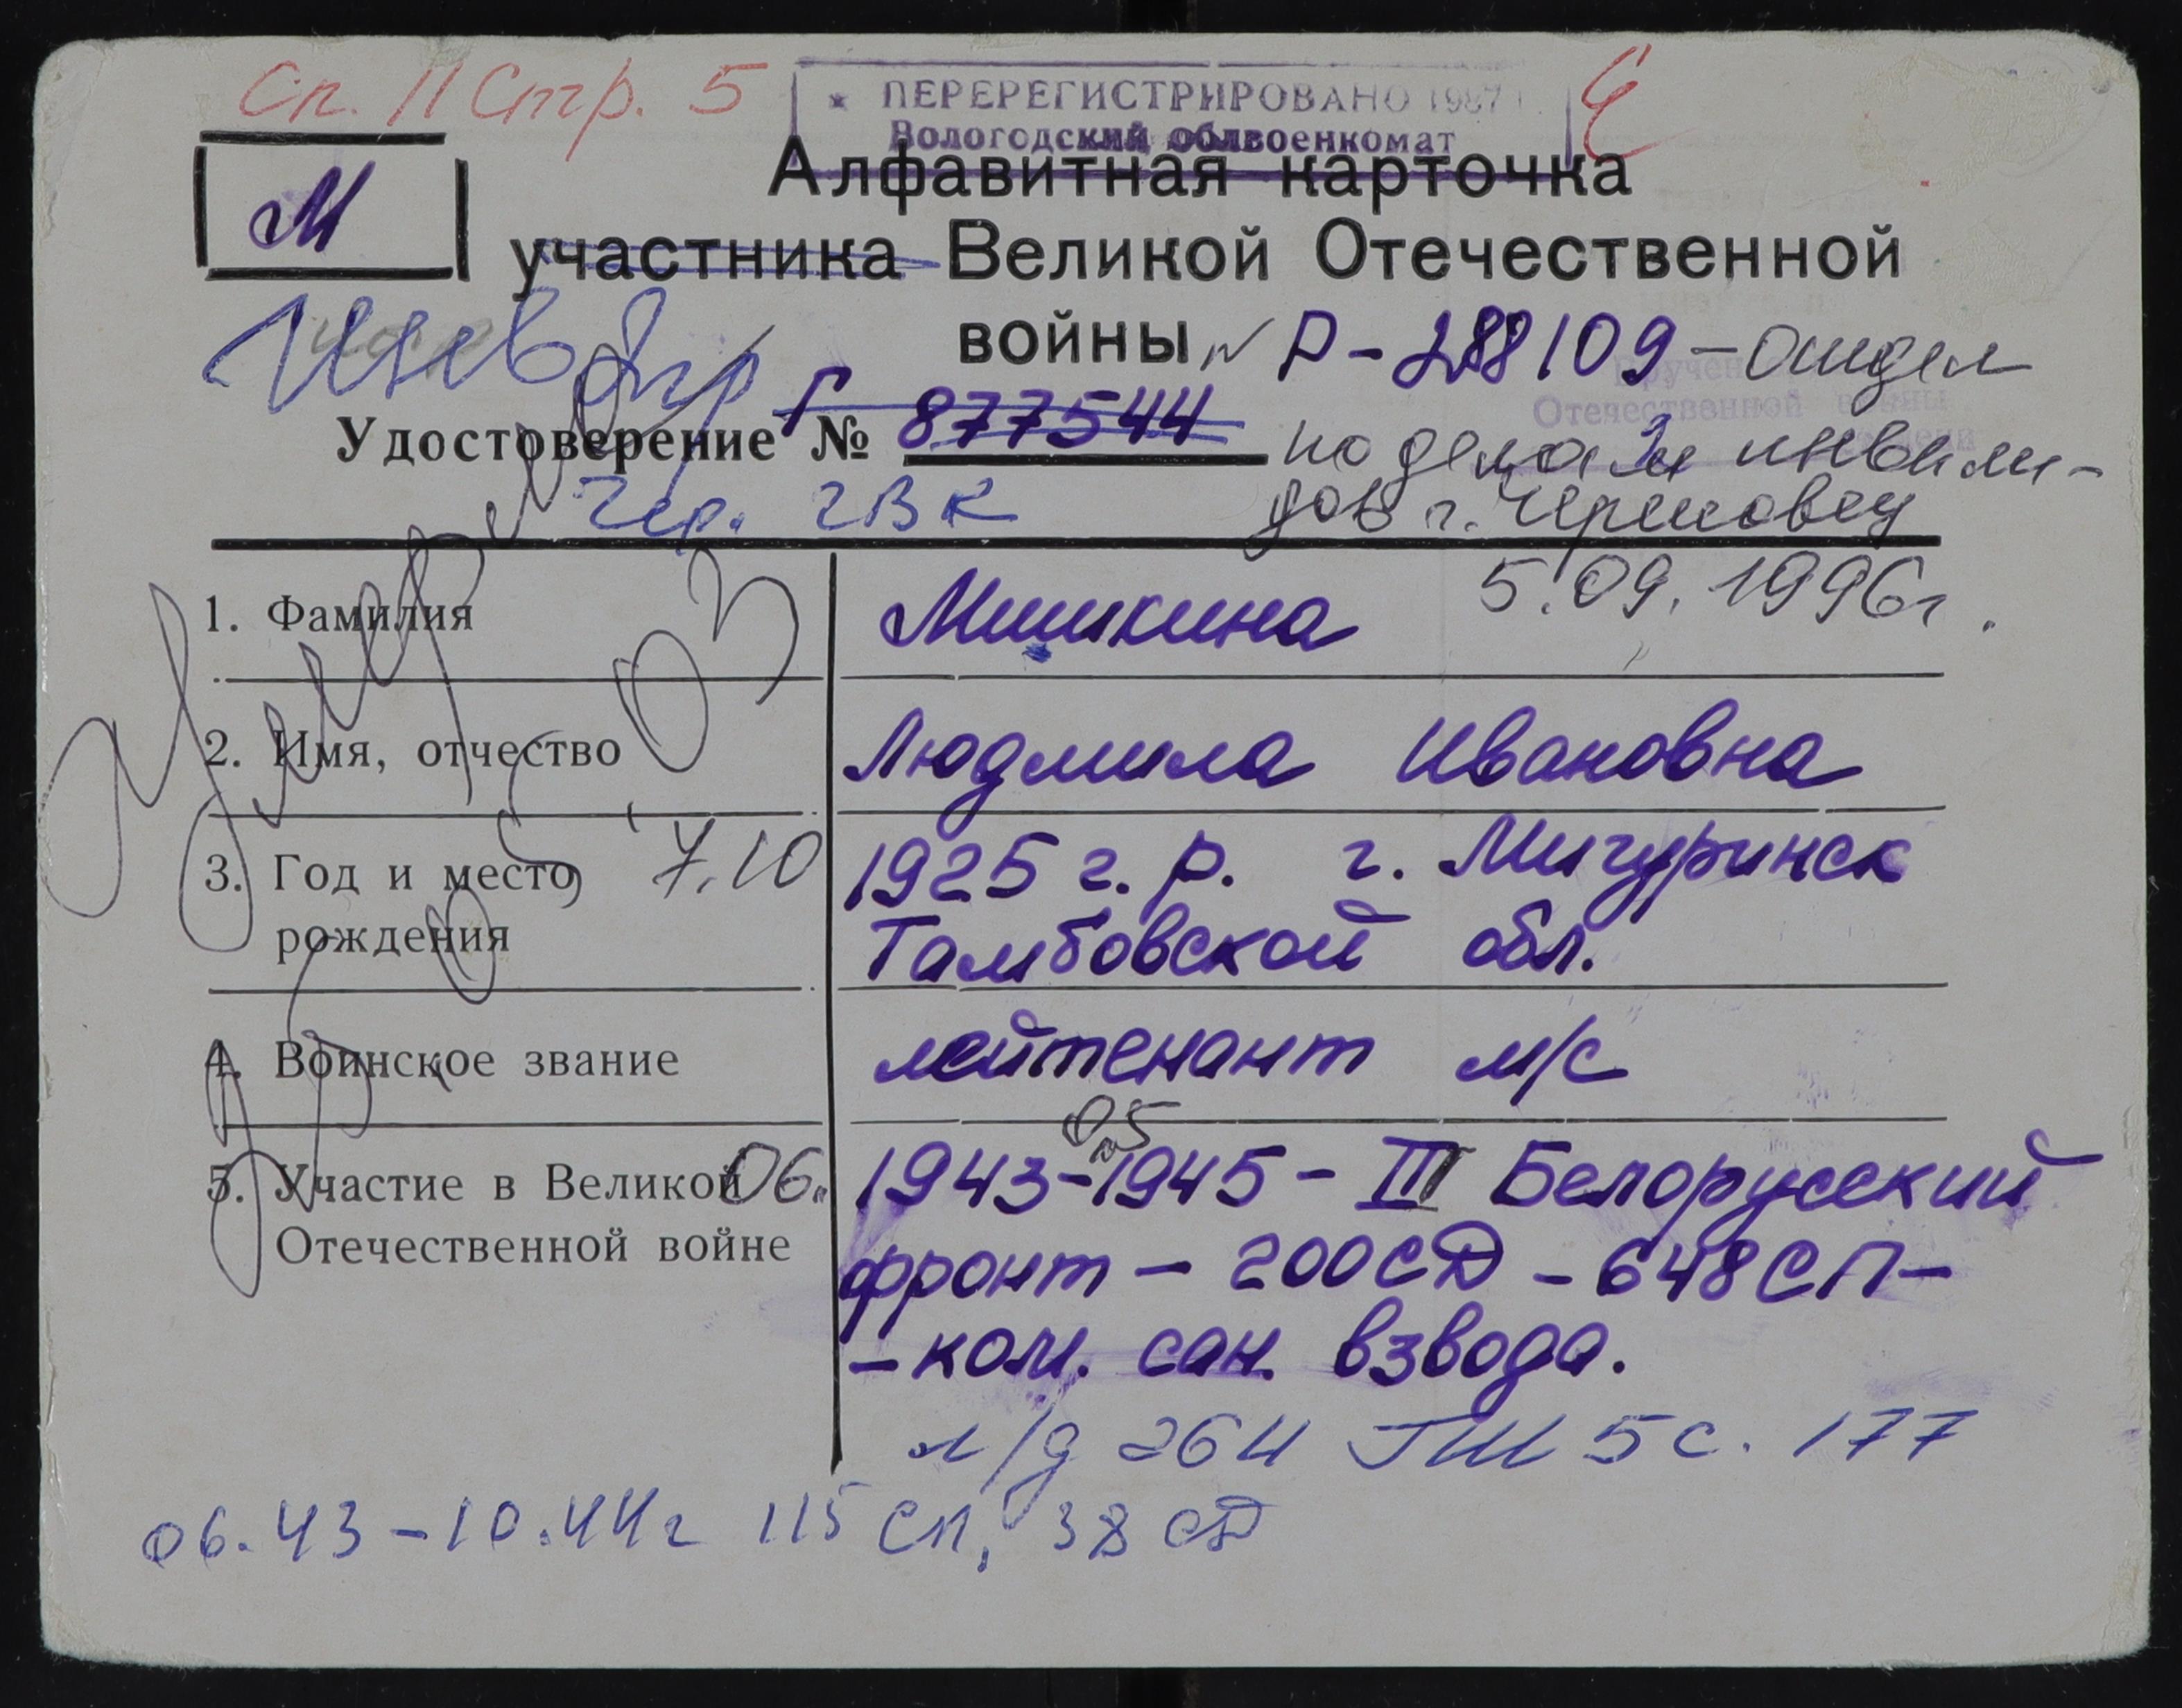 Сп. 11 Стр. 5
* ПЕРЕРЕГИСТРИРОВАНО 1987 г.
Вологодский облвоенкомат
М
Алфавитная карточка
участника Великой Отечественной
войны № Р-288109 – отдел
Инв 2 гр
Удостоверение № Г 877544
по делам инвали-
дов г. Череповец
Чер. ГВК
5.09.1996г.
Умер
1. Фамилия Мишкина
2. Имя, отчество Людмила Ивановна
3. Год и место рождения 7.10 1925 г. р. г. Мичуринск
Тамбовской обл.
4. Воинское звание лейтенант м/с
05
5. Участие в Великой Отечественной войне 06. 1943-1945 - III Белорусский
фронт - 200СД - 648СП-
- ком. сан. взвода.
л/д 264 ГШ 5 с. 177
06.43-10.44г 115 СП, 38 СД